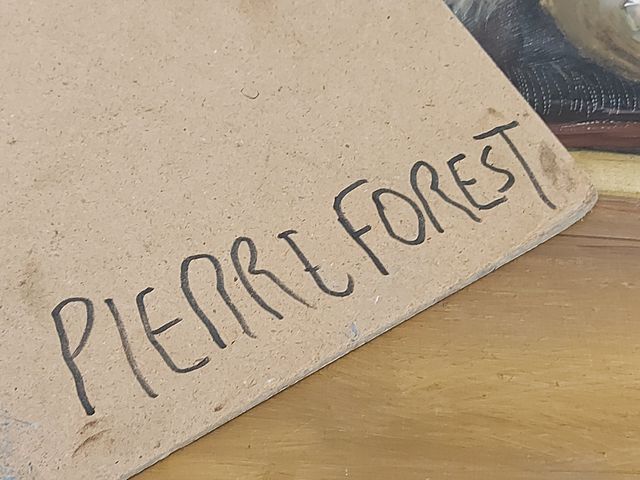 PIERRE FOREST